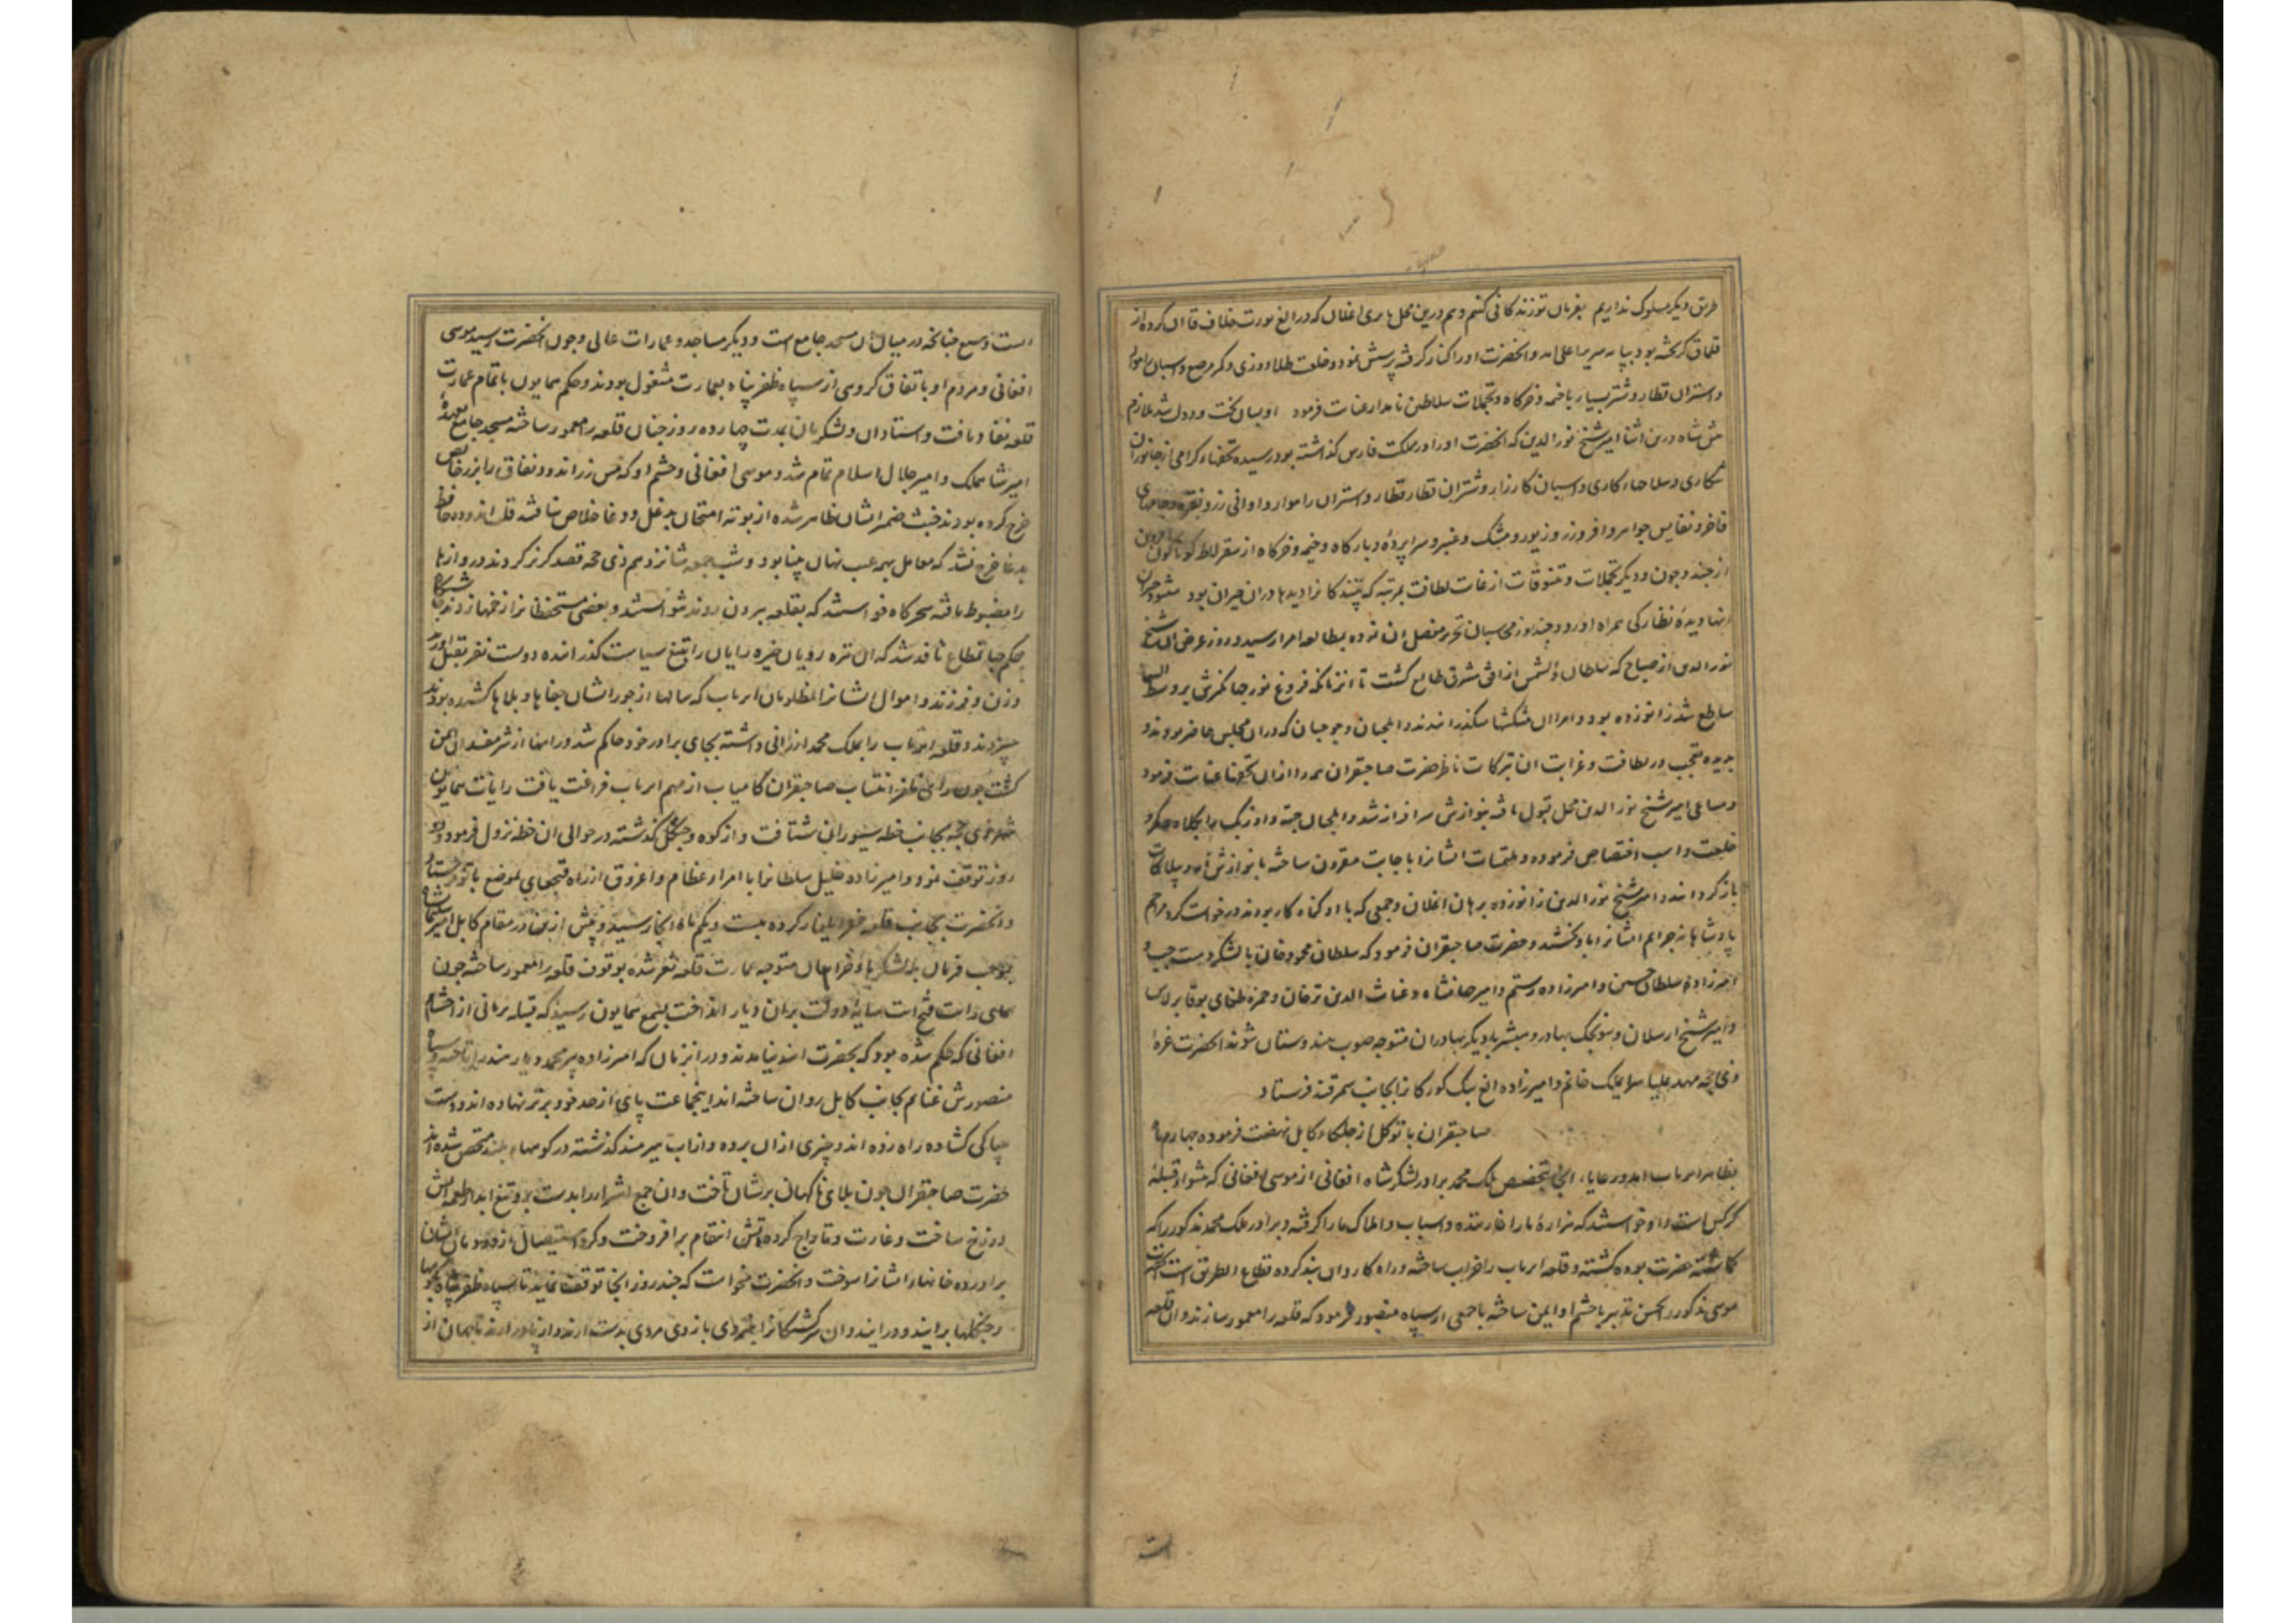 طریق دیکر سلوک نداریم بفرمان تو زندکانی کنیم وهم درین محل تایزی اغلان که در الغ یورت خلاف قاآن کرده از
قلماق کریخته بود بپایه سریر اعلی امد وانحضرت اورا کنار کرفته پرسش نمود وخلعت طلادوزی وکمر مرصع واسبان راهوار
واستران قطار وشتر بسیار با خیمه وخرکاه وتجملات سلاطین نامدار عنایت فرمود او بسان بخت ودولت شد ملازم
پیش شاه درین اثنا امیر شیخ نور الدین که انحضرت اورا در مملکت فارس کذاشته بود رسیده تحفهاء کرامی از جانوران
شکاری وسلاحهاء کاری واسبان کارزار وشتران قطار قطار واستران راهوار واوانی زر ونقره
فاخر ونفایس جواهر وافر وزر وزیور ومشک وعنبر وسراپرده وبارکاه وخیمه وخرکاه از سقرلاط کوناکون
از چند وچون ودیکر تجملات وتنسوقات از غایت لطافت بمرتبه که بینندکانرا دیدها دران حیران بود
نادیده نظارکی همراه اورد وچند روز محاسبان تحریر مفصل ان نموده بمطالعه امرا رسید وروز عرض
نور الدین از صباح که سلطان والشمس از افق مشرق طالع کشت تا انزمانکه فروغ نور جهانکیرش بر وسط السما
ساطع شد زانو زده بود وامرا ان پیشکشها میکذرانیدند وایلچیان وچوجیان که دران مجلس حاضر بودند
بدیده تعجب در لطافت وغرابت ان تبرکات ناظر حضرت صاحبقران همه را ازان تحفها عنایت فرمود
ومساعی امیر شیخ نور الدین محل قبول یافته بنوازش سرافراز شد وایلچیان جته واوزبک را بکلاه وکمر و
خلعت واسب اختصاص فرموده وملتمسات ایشانرا باجابت مقرون ساخته با نوازش نامه وبیلاکات
بازکردانید وامیر شیخ نور الدین زانو زده برهان اغلان وجمعی که با او کناه کار بودند درخواست کرد مراحم
پادشاهانه جرایم ایشانرا باو بخشید وحضرت صاحبقران فرمود که سلطان محمود خان با لشکر دست چپ و
امیرزاده سلطان حسین وامیرزاده رستم وامیر جهانشاه وغیاث الدین ترخان وحمزه طغای بوقا برلاس
وامیر شیخ ارسلان وسونجک بهادر ومبشر با دیکر بهادران متوجه صوب هندوستان شوند انحضرت غره
ذی الحجه مهد علیا سرایملک خانم وامیرزاده الغ بیک کورکانرا بجانب سمرقند فرستاد
صاحبقران با توکل از جلکاء کابل نهضت فرموده چهارم ماه
بظاهر ایریاب امد ورعایاء ایریاب بتخصیص ملک محمد برادر لشکر شاه افغانی از موسی افغانی که پیشوای قبیله
کرکس است داد خواستند که هزاره ما را غارتیده واسباب واملاک ما را کرفته وبرادر ملک محمد مذکور را که
کماشته حضرت بوده کشته وقلعه ایریاب را خراب ساخته وراه کاروان بند کرده قطاع الطریق است انحضرت
موسی مذکور را بحسن تدبیر با حشم او ایمن ساخته با جمعی از سپاه منصور فرمود که قلعه را معمور سازند وان قلعه
است وسیع چنانکه در میان ان مسجد جامع است ودیکر مساجد وعمارات عالی وچون انحضرت رسید موسی
افغانی ومردم او باتفاق کروهی از سپاه ظفرپناه بعمارت مشغول بودند وحکم همایون باتمام عمارت
قلعه نفاد یافت واستادان ولشکریان بمدت چهارده روز چنان قلعه را معمور ساخته مسجد جامع بعهده
امیر شاهملک وامیر جلال اسلام تمام شد وموسی افغانی وحشم او که مس زر اندود نفاق را بزر خالص
خرج کرده بودند خبث ضمیر ایشان ظاهر شده از بوته امتحان بدغل ودغا خلاص نیافتند قلب اندوده حافظ
بدغا خرج نشد که معامل بهمه عیب نهان بینا بود وشب جمعه شانزدهم ذی حجه قصد کریز کردند دروازها
را مضبوط یافته سحرکاه خواستند که بقلعه بیرون روند نتوانستند وبعضی مستحفظانرا زخمها زدند
حکم جهانمطاع نافذ شد که ان تیره رویان خیره رایان را بتیغ سیاست کذرانیده دویست نفر بقتل اورد
وزن وفرزند واموال ایشانرا بمظلومان ایریاب که سالها از جور ایشان جفاها وبلاها کشیده بودند
سپردند وقلعه ایریاب را بملک محمد ارزانی داشته بجای برادر خود حاکم شد وراهها از شر مفسدان ایمن
کشت چون رای ظفر انتساب صاحبقران کامیاب از مهم ایریاب فراغت یافت رایات همایون
ذی حجه بجانب خطه شنوزان شتافت واز کوه وجنکل کذشته در حوالی ان خطه نزول فرمود ودو
روز توقف نمود وامیرزاده خلیل سلطانرا با امراء عظام واغروق از راه قبچغای بموضع بانو فرستاد
وانحضرت بجانب قلعه نغز ایلغار کرده بیست ویکم ماه انجا رسید وپیش ازین در مقام کابل امیر سلیمانشاه
بموجب فرمان با لشکرهاء خراسان متوجه عمارت قلعه نغز شده بوقوف قلعه را معمور ساخته چون
همای رایت فتح ایت سایه دولت بران دیار انداخت بسمع همایون رسید که قبیله پرنیانی از احشام
افغانی که حکم شده بود که بحضرت ایند نیامدند ودر انزمان که امیرزاده پیر محمد دیار هند را تاخته وسپاه
منصورش غنایم بجانب کابل روان ساخته اند اینجماعت پای از حد خود برتر نهاده اند ودست
چپاکی کشاده راه زده اند وچیزی ازان برده واز اب هیرمند کذشته در کوههاء بلند متحصن شده اند
حضرت صاحبقران چون بلای ناکهان برشان تاخت وان جمع اشرار را بدست برد تیغ ابدار طعمه اتش
دوزخ ساخت وغارت وتاراج کرده اتش انتقام برافروخت وکرد استیصال از دودمان ایشان
براورده خانهاء ایشانرا سوخت وانحضرت میخواست که چند روز انجا توقف نماید تا سپاه ظفرپناه بکوهها
وجنکلها برایند ودرایند وان سرکشتکانرا بضرب بازوی مردی بدست ارند واز پای درارند تا جهان از